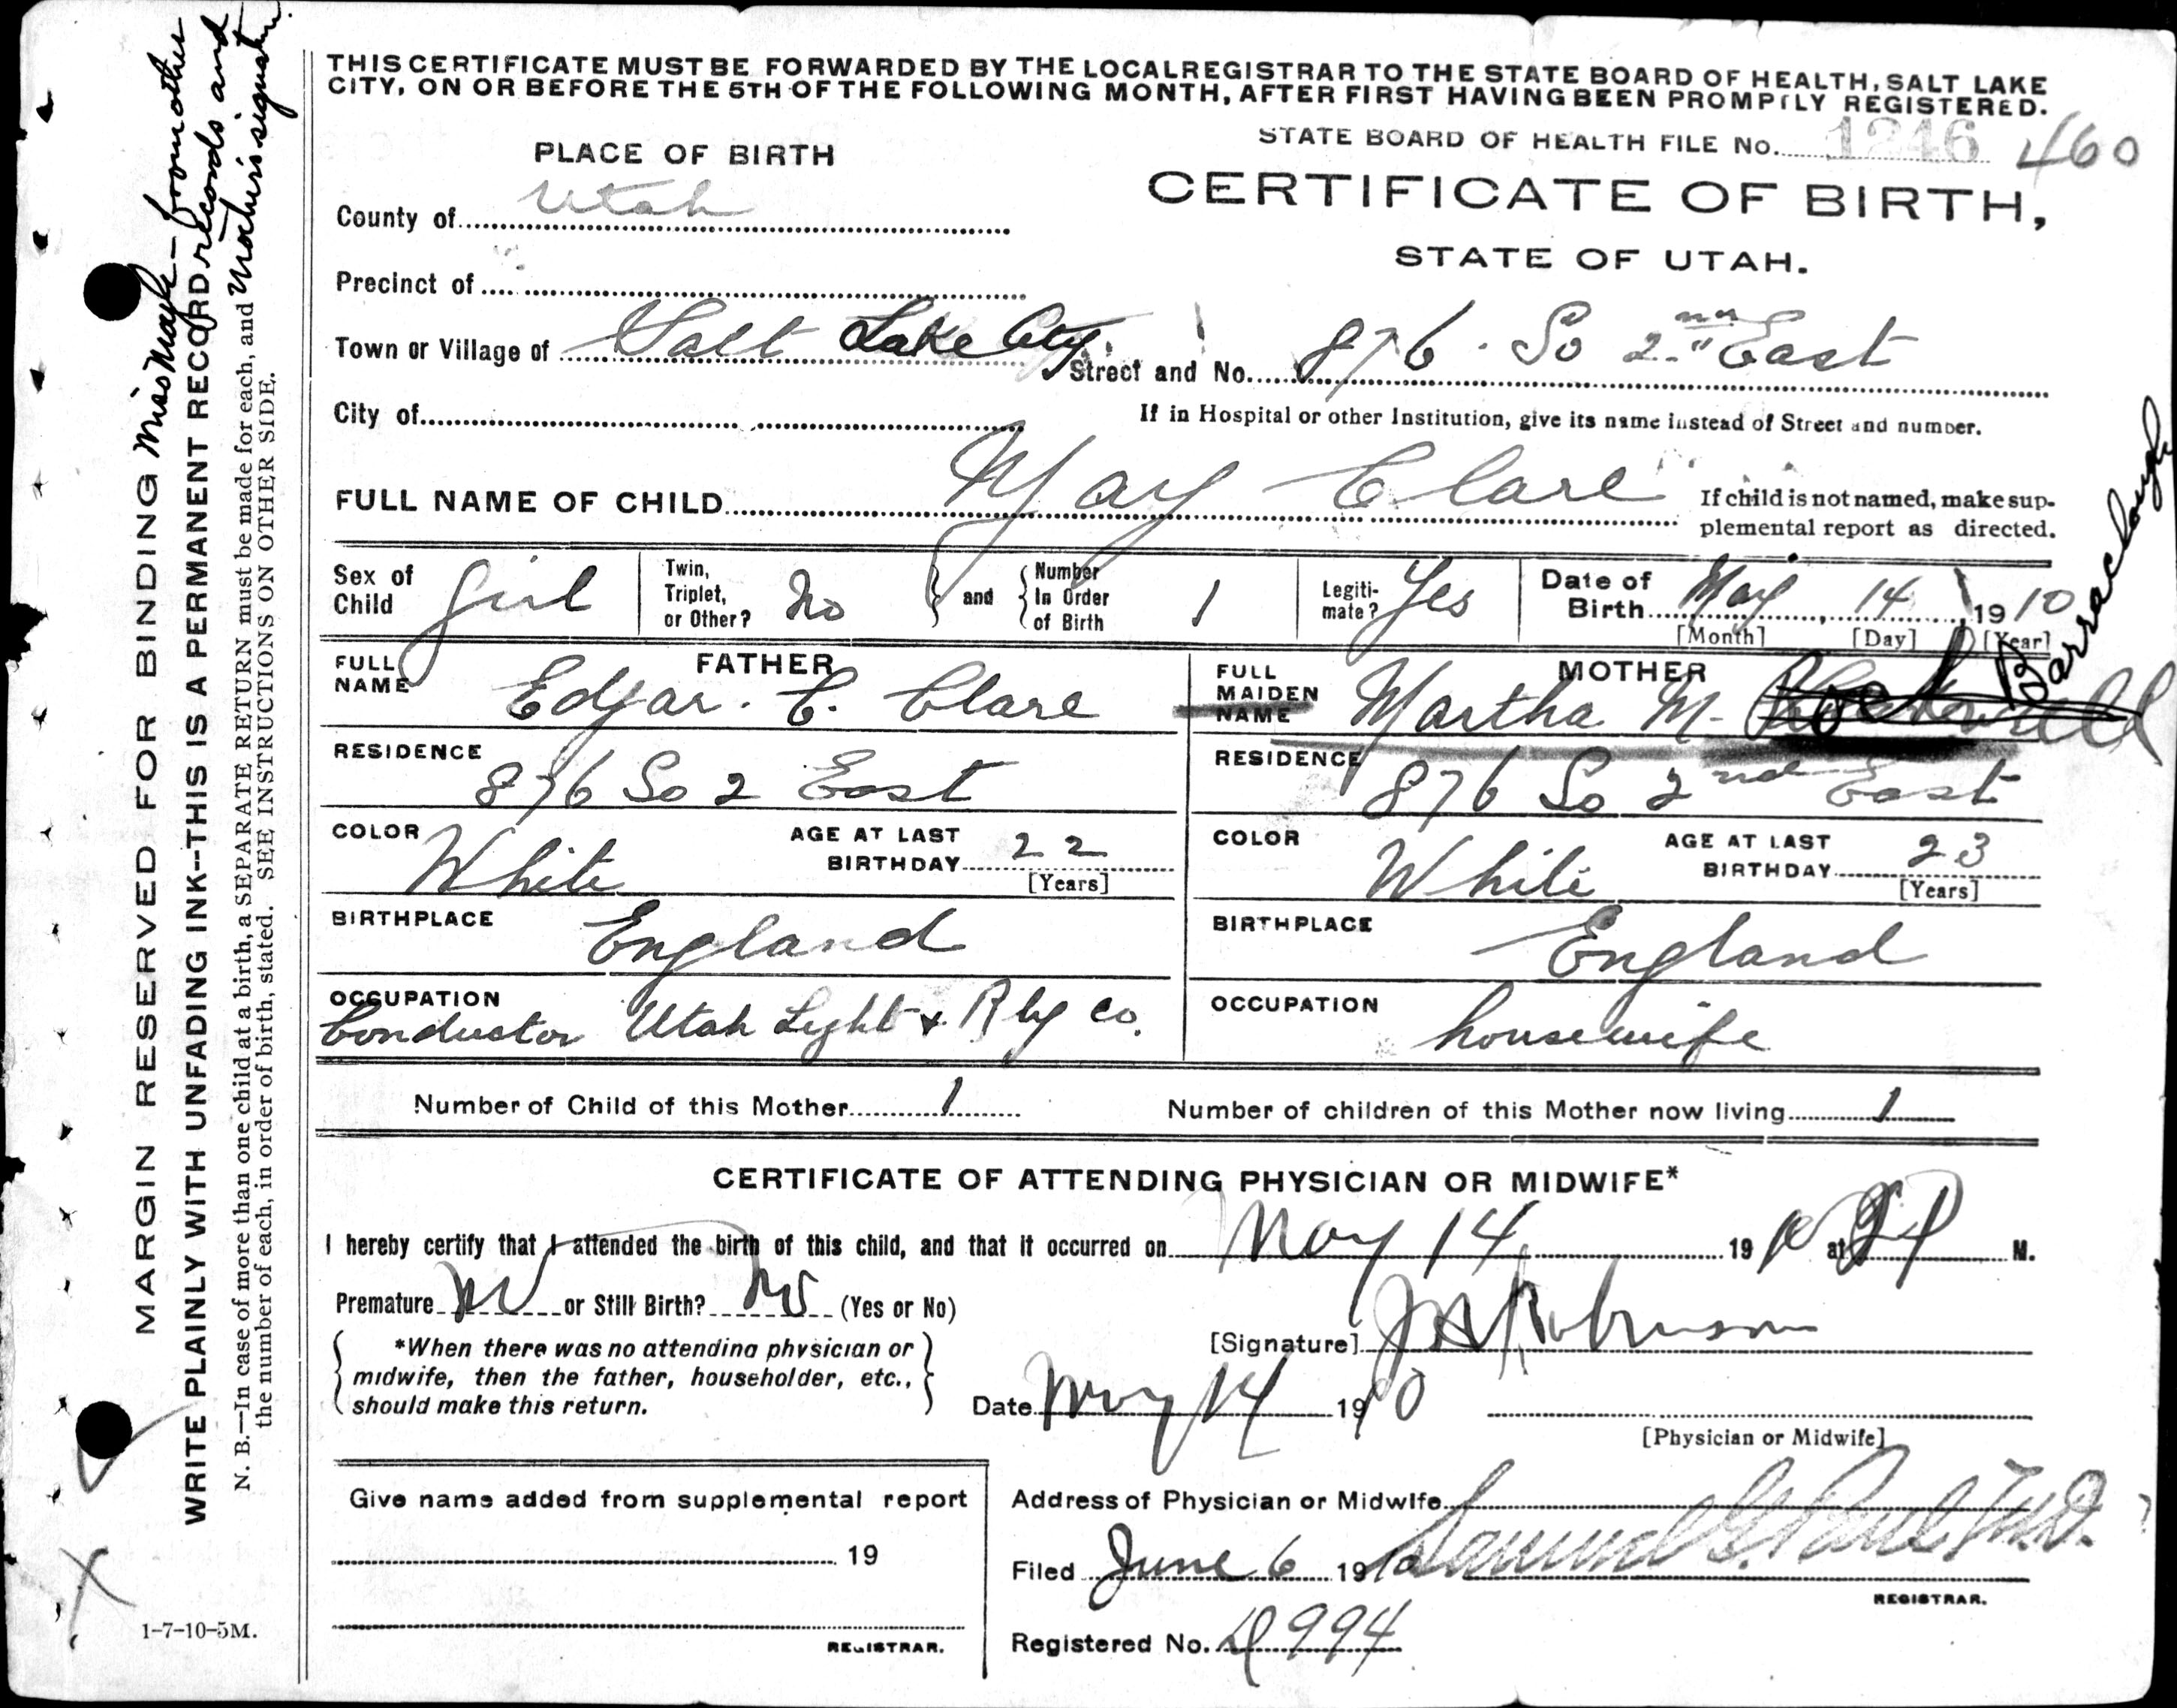 THIS CERTIFICATE MUST BE FORWARDED BY THE LOCAL REGISTRAR TO THE STATE BOARD OF HEALTH, SALT LAKE
CITY, ON OR BEFORE THE 5TH OF THE FOLLOWING MONTH, AFTER FIRST HAVING BEEN PROMPTLY REGISTERED.
STATE BOARD OF HEALTH FILE No. 1246 460
PLACE OF BIRTH
CERTIFICATE OF BIRTH,
STATE OF UTAH.
County of Utah
Precinct of
Town or Village of Salt Lake City
Street and No. 876 So 2nd East
City of
If in Hospital or other Institution, give its name instead of Street and number.
FULL NAME OF CHILD May Clare
If child is not named, make sup-
plemental report as directed.
Sex of Child Girl
Twin, Triplet, or Other? No
and
Number In Order of Birth 1
Legiti-mate? Yes
Date of Birth May 14 1910
[Month] [Day] [Year]
FATHER
FULL NAME Edgar. C. Clare
MOTHER
FULL MAIDEN NAME Martha M. Barraclough
RESIDENCE 876 So 2 East
RESIDENCE 876 So 2nd East
COLOR White
AGE AT LAST BIRTHDAY 22
[Years]
COLOR White
AGE AT LAST BIRTHDAY 23
[Years]
BIRTHPLACE England
BIRTHPLACE England
OCCUPATION Conductor Utah Light & Rly Co.
OCCUPATION housewife
Number of Child of this Mother 1
Number of children of this Mother now living 1
CERTIFICATE OF ATTENDING PHYSICIAN OR MIDWIFE*
I hereby certify that I attended the birth of this child, and that it occurred on May 14 1910 at P M.
Premature No or Still Birth? No (Yes or No)
*When there was no attending physician or
midwife, then the father, householder, etc.,
should make this return.
[Signature] Robinson
Date May 14 1910
[Physician or Midwife]
Give name added from supplemental report
19
REGISTRAR.
Address of Physician or Midwife
Filed June 6 1910 Samuel G. Paul M.D.
REGISTRAR.
Registered No. 994
MARGIN RESERVED FOR BINDING
WRITE PLAINLY WITH UNFADING INK--THIS IS A PERMANENT RECORD
N. B.—In case of more than one child at a birth, a SEPARATE RETURN must be made for each, and
the number of each, in order of birth, stated. SEE INSTRUCTIONS ON OTHER SIDE.
from other
records and
Mother's signature
1-7-10-5M.